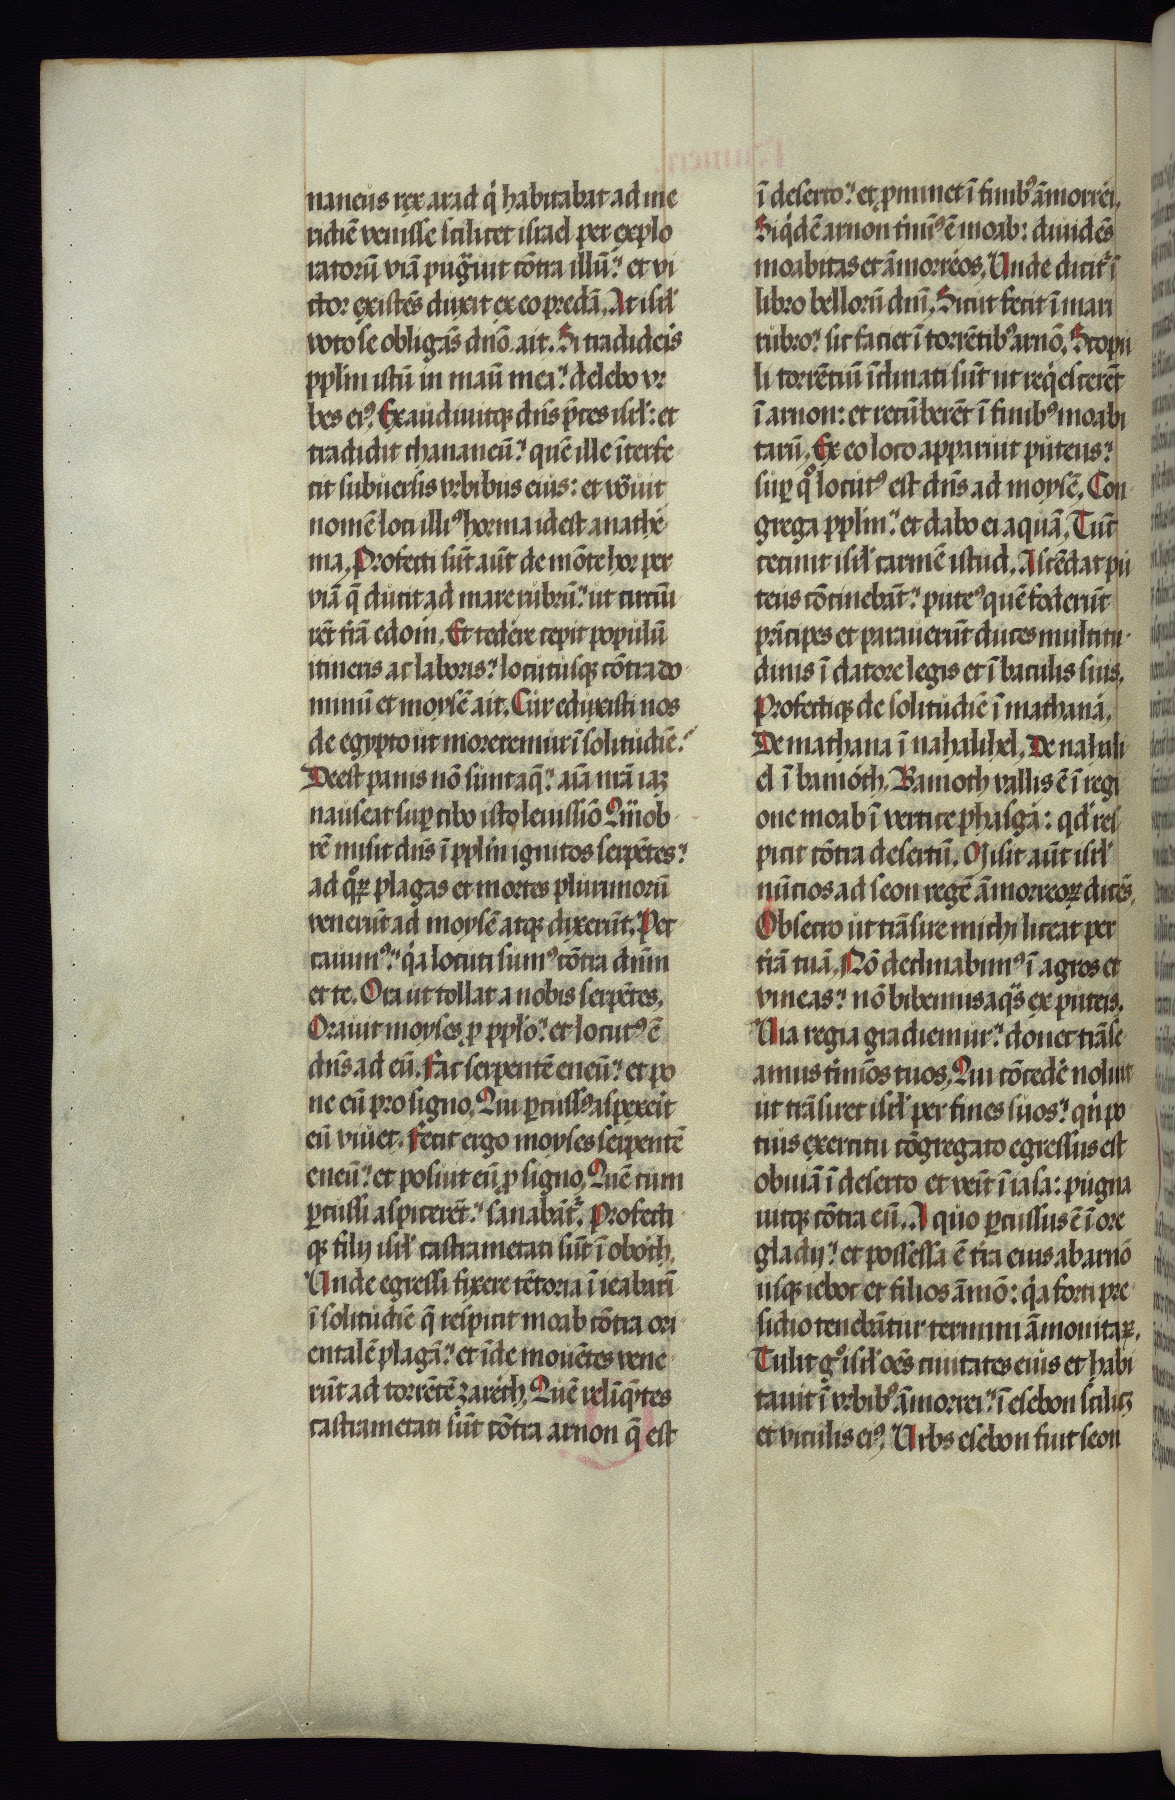 naneus rex arad q̇ habitabat ad me
ridiē venisse scilicet israel per explo
ratorū viā pugͣuit cōtra illū. et vi
ctor existēs duxit ex eo predā. At isrl̓
voto se obligās dn̄o ait. Si tradideris
pplm istū in manū mea. delebo vr
bes eiꝰ. Exaudiuitqꝫ dn̄s p̄ces isrl̓: et
tradidit chananeū. quē ille īterfe
cit subuersis vrbibus eius: et vocͣuit
nomē loci illiꝰ horma id est anathe
ma. Profecti sūt aūt de mōte hor per
viā q̄ ducit ad mare rubrū. ut circūi
rēt t̄rā edom. Et tedere cepit populū
itineris ac laboris. locutusqꝫ cōtra do
minū et moysē ait. Cur eduxisti nos
de egypto ut moreremur ī solitudīe.
Deest panis nō sunt aq̄. aīa nr̄a iaꝫ
nauseat suꝑ cibo isto leuissīo Quāob
rē misit dn̄s ī pplm ignitos serpētes.
ad qͦꝝ plagas et mortes plurimorū
venerūt ad moysē atqꝫ dixerūt. Pec
cauimꝰ. q̇a locuti sumꝰ cōtra dn̄m
et te. Ora ut tollat a nobis serpētes.
Orauit moyses ꝓ pplo. et locutꝰ ē
dn̄s ad eū. Fac serpentē eneū. et po
ne eū pro signo. Qui ꝑcussꝰ aspexeit
eū viuet. Fecit ergo moyses serpentē
eneū. et posuit eū ꝓ signo. Quē cum
ꝑcussi aspicerēt. sanabāt̄. Profecti
qꝫ filij isrl̓ castrametati sūt ī oboth.
Unde egressi fixere tētoria ī ieabarī
ī solitudīe q̄ respicit moab cōtra ori
entalē plagā. et īde mouētes vene
rūt ad torrētē zareth. Quē relīq̄tes
castrametati sūt cōtra arnon q̄ est
ī deserto. et ꝓminet ī finibꝰ āmorrei.
Siq̇dē arnon t̄minꝰ ē moab: diuidēs
moabitas et āmorreos. Unde dicit̄ ī
libro bellorū dn̄i. Sicut fecit ī mari
rubro. sic faciet ī torrētibꝰ arnō. Scopu
li torrētiū īclinati sūt ut req̇escerēt
ī arnon: et recūberēt ī finibꝰ moabi
tarū. Ex eo loco apparuit puteus.
suꝑ qͦ locutꝰ est dn̄s ad moysē. Con
grega pplm. et dabo ei aquā. Tūc
cecinit isrl̓ carmē istud. Ascēdat pu
teus cōcinebāt. puteꝰ quē foderūt
prīcipes et parauerūt duces multitu
dinis ī datore legis et ī baculis suis.
Profectiqꝫ de solitudīe ī mathana.
De mathana ī nahalihel. De nahali
el ī bamoth. Bamoth vallis ē ī regi
one moab ī vertice phasga: qd̓ res
picit cōtra desertū. Misit aūt isrl̓
nūcios ad seon regē āmorreoꝝ dicēs.
Obsecro ut trāsire michi liceat per
t̄rā tuā. Nō declinabimꝰ ī agros et
vineas. nō bibemus aq̄s ex puteis.
Via regia gradiemur. donec trāse
amus t̄mīos tuos. Qui cōcede noluit
ut trāsiret isrl̓ per fines suos. qn̓ po
tius exercitu cōgregato egressus est
obuiā ī deserto et venit ī iasa: pugna
uitqꝫ cōtra eū. A quo ꝑcussus ē ī ore
gladij. et possessa ē t̄ra eius ab arnō
usqꝫ ieboc et filios āmō: q̇a forti pre
sidio tenebātur termini āmonitaꝝ.
Tulit gͦ isrl̓ oēs ciuitates eius et habi
tauit ī vrbibꝰ āmorrei. ī esebon scilicꝫ
et viculis eiꝰ. Urbs esebon fuit seon